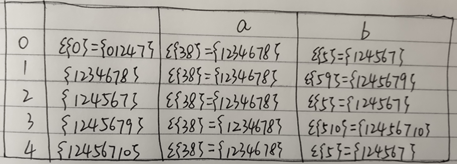 a b
0 ε{0}={01247} ε{38}={1234678} ε{5}={124567}
1 {1234678} ε{38}={1234678} ε{59}={1245679}
2 {124567} ε{38}={1234678} ε{5}={124567}
3 {1245679} ε{38}={1234678} ε{510}={12456710}
4 {12456710} ε{38}={1234678} ε{5}={124567}